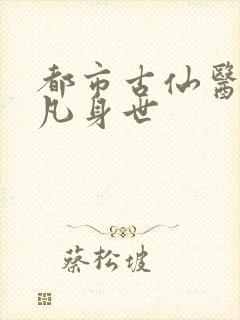 都市古仙醫
凡身世
蔡松坡